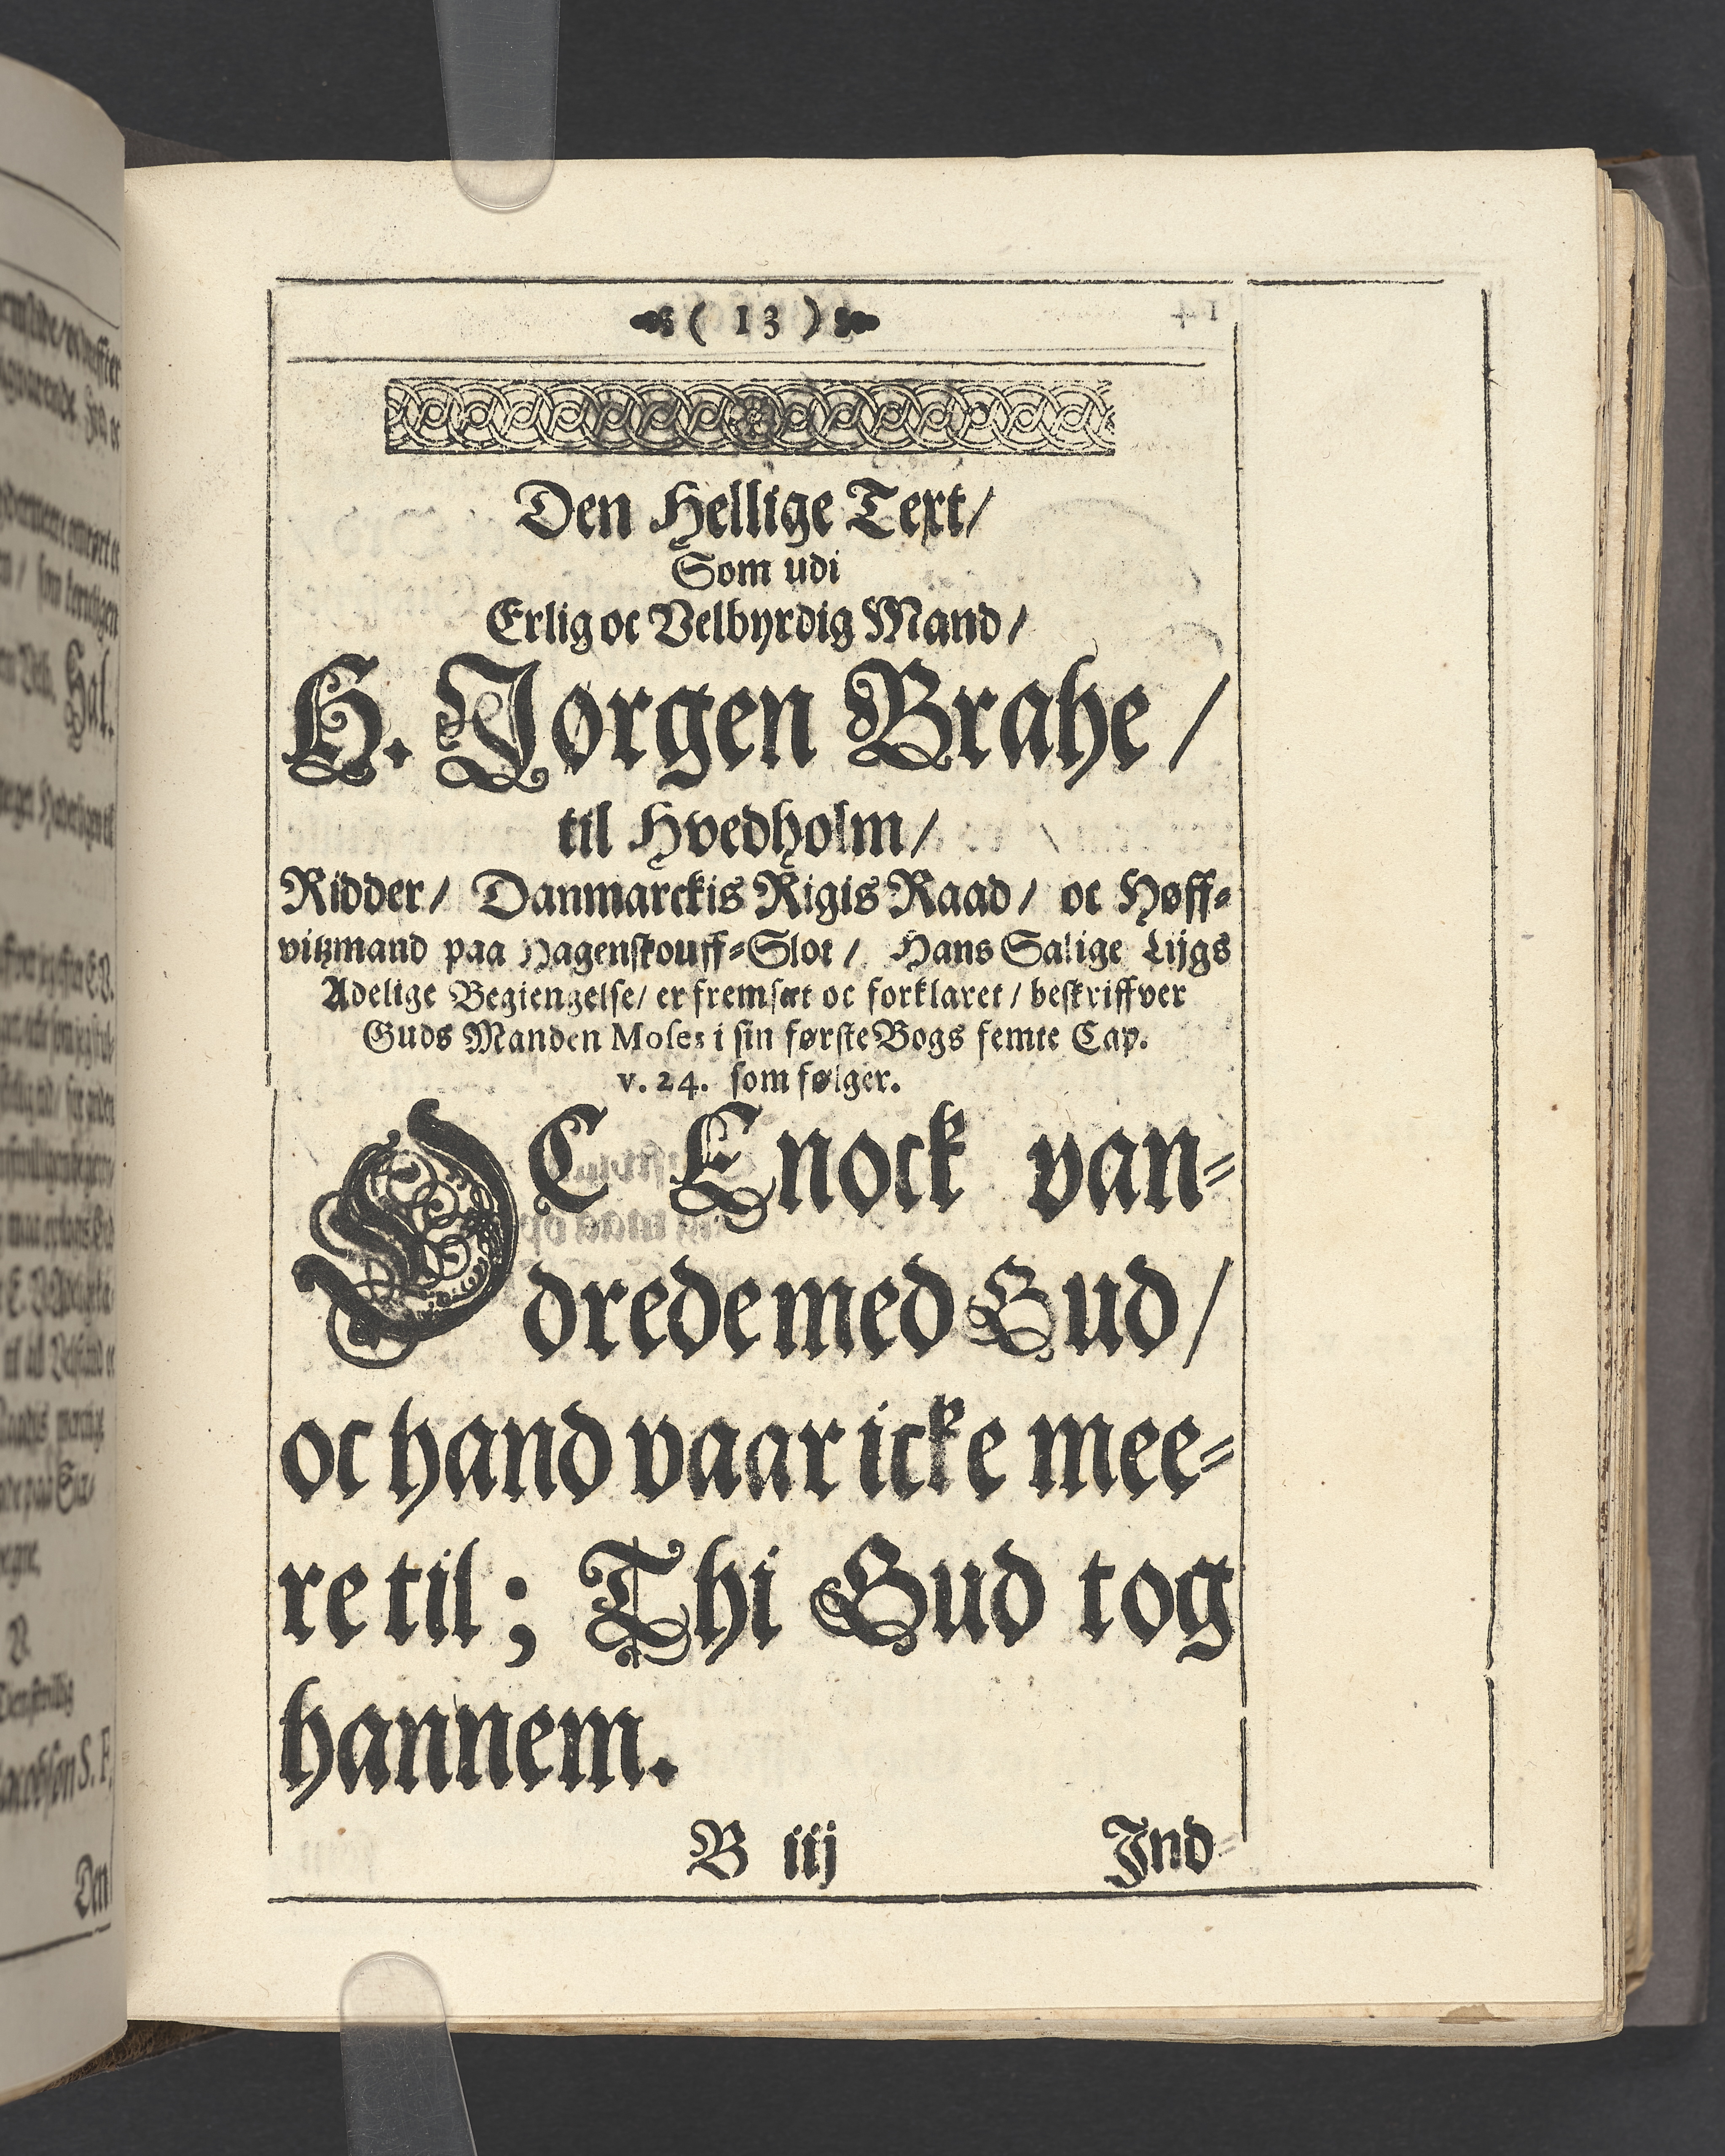 ( 13 )
Den Hellige Text/
Som udi
Erlig oc Velbyrdig Mand/
H. Jørgen Brahe/
til Hvedholm/
Ridder/ Danmarckis Rigis Raad/ oc Høff-
vitzmand paa Hagenskouff-Slot/ Hans Salige Lijgs
Adelige Begiengelse/ er fremsæt oc forklaret/ beskriffver
Guds Manden Moses i sin første Bogs femte Cap.
v. 24. som følger.
OC Enock van-
drede med Gud/
oc hand vaar icke mee-
re til; Thi Gud tog
hannem.
B iij
Ind-